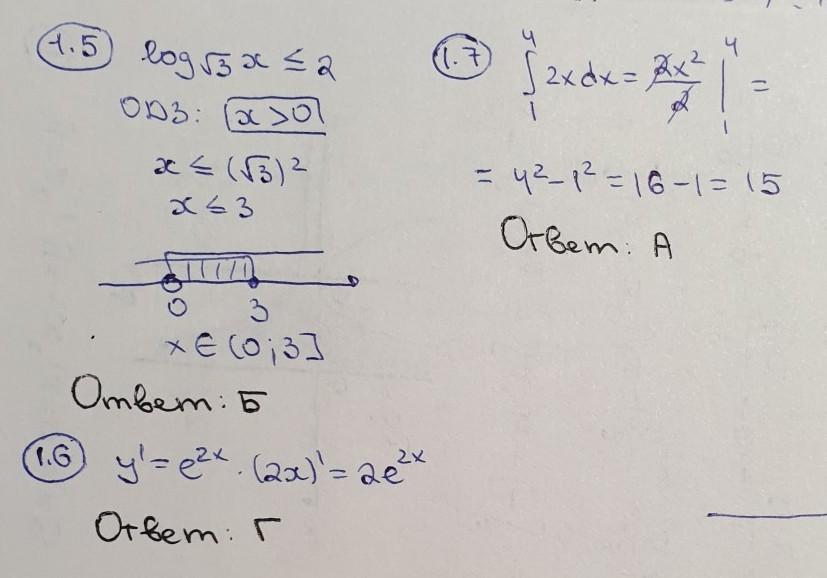 1.5 log√3 x ≤ 2
ОДЗ: x > 0
x ≤ (√3)²
x ≤ 3
0 3
x ∈ (0;3]
Ответ: Б
1.6 y' = e^{2x} · (2x)' = 2e^{2x}
Ответ: Г
1.7 ∫₁⁴ 2xdx = 2x²/2 |₁⁴ =
= 4² - 1² = 16 - 1 = 15
Ответ: А